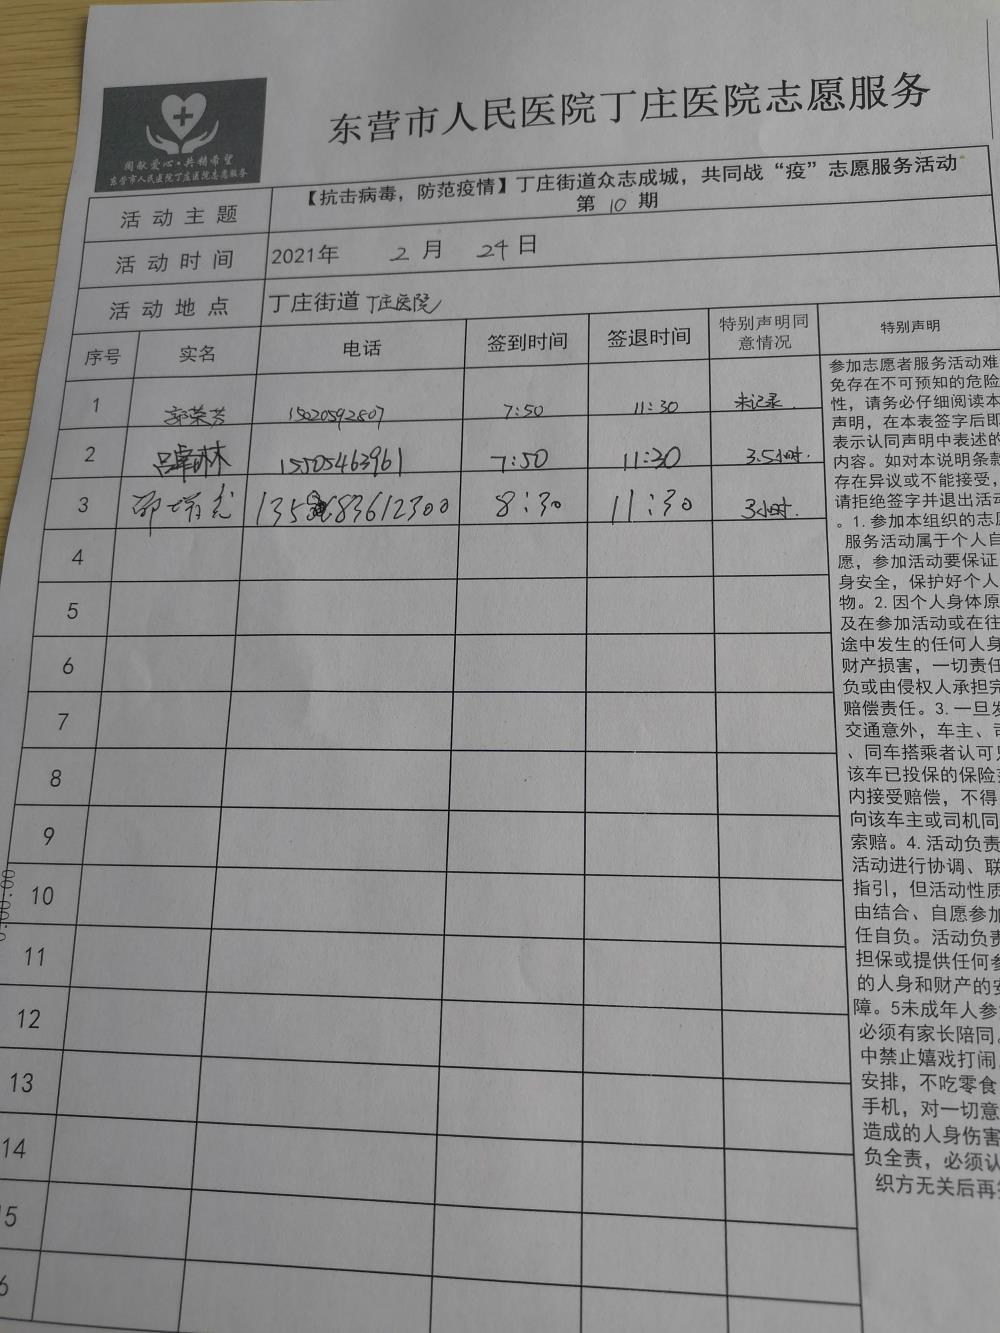 东营市人民医院丁庄医院志愿服务
东营市人民医院丁庄医院志愿服务
活动主题 【抗击病毒，防范疫情】丁庄街道众志成城，共同战“疫”志愿服务活动
第 10 期
活动时间 2021年 2 月 24 日
活动地点 丁庄街道 丁庄医院
序号 实名 电话 签到时间 签退时间 特别声明同意情况 特别声明
1 郭荣芳 15020592807 7:50 11:30 未记录.
2 吕卓琳 15505463961 7:50 11:30 3.5小时.
3 8:30 11:30 3小时.
4
5
6
7
8
9
10
11
12
13
14
5
6
参加志愿者服务活动难
免存在不可预知的危险
性，请务必仔细阅读本
声明，在本表签字后即
表示认同声明中表述的
内容。如对本说明条款
存在异议或不能接受，
请拒绝签字并退出活动
。1.参加本组织的志愿
服务活动属于个人自
愿，参加活动要保证
身安全，保护好个人
物。2.因个人身体原
及在参加活动或在往
途中发生的任何人身
财产损害，一切责任
负或由侵权人承担完
赔偿责任。3.一旦发
交通意外，车主、司
、同车搭乘者认可只
该车已投保的保险范
内接受赔偿，不得
向该车主或司机同
索赔。4.活动负责
活动进行协调、联
指引，但活动性质
由结合、自愿参加
任自负。活动负责
担保或提供任何参
的人身和财产的安
障。5未成年人参
必须有家长陪同。
中禁止嬉戏打闹
安排，不吃零食
手机，对一切意
造成的人身伤害
负全责，必须认
织方无关后再